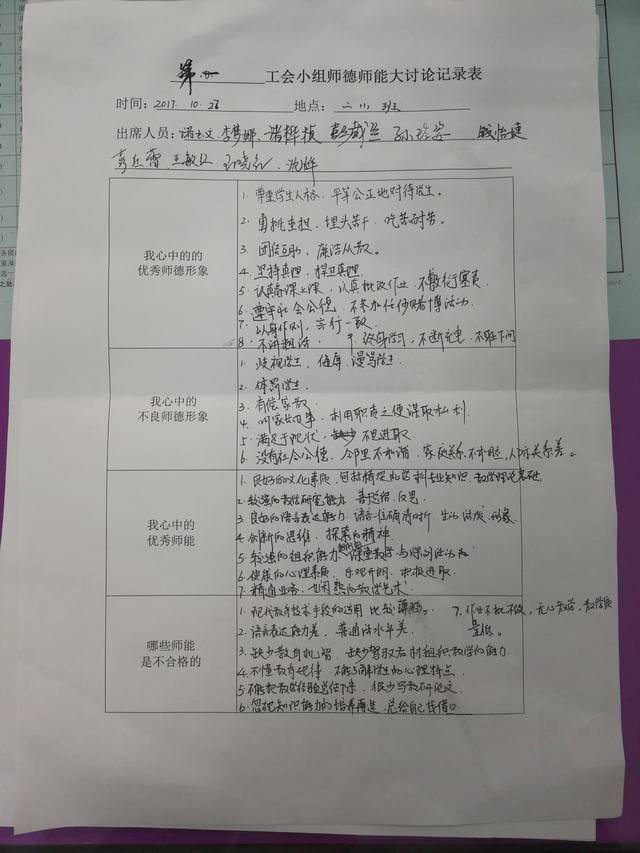 第 工会小组师德师能大讨论记录表
时间：2017. 10. 26 地点： 二(1)班
出席人员： 李梦娜、诸桦桢
王敏红
我心中的的
优秀师德形象
1. 尊重学生人格，平等公正地对待学生。
2. 勇挑重担，埋头苦干，吃苦耐劳。
3. 团结互助，廉洁从教。
4. 坚持真理，捍卫真理。
5. 认真备课上课，认真批改作业，不敷衍塞责
6. 遵守社会公德，不参加任何赌博活动。
7. 以身作则，言行一致。
8. 不讲粗话。 9. 终身学习，不断充电，不耻下问
我心中的
不良师德形象
1. 歧视学生，侮辱、漫骂学生。
2. 体罚学生
3. 有偿家教
4. 叫家长办事，利用职责之便谋取私利
5. 满足于现状，不思进取。
6. 没有社会公德，邻里不和谐，家庭关系不和睦，人际关系差。
我心中的
优秀师能
1. 良好的文化素质，包括精深的学科专业知识、教学理论基础。
2. 较强的教学研究能力，善总结、反思
3. 良好的语言表达能力，语言准确清晰，生动活泼、形象
4. 创新的思维，探索的精神
5. 较强的组织能力，课堂教学与课外活动
6. 健康的心理素质，乐观开朗，积极进取
7. 精通业务，娴熟的教学艺术
哪些师能
是不合格的
1. 现代教育技术手段的运用比较薄弱。 7. 作业不批不改，无心教学，教学质
量低。
2. 语言表达能力差，普通话水平差
3. 缺少教育机智，缺少驾驭教材组织教学的能力
4. 不懂教育规律，不能了解学生的心理特点
5. 不能把教学经验总结下来，很少写教研论文
6. 忽视知识能力的培养再造，总给自己找借口